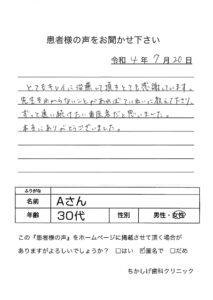 患者様の声をお聞かせ下さい
令和 4 年 7 月 20 日
とてもキレイに治療して頂きとても感謝しています。
先生もわからないことがあればていねいに教えて下さり、
ずっと通い続けたい歯医者だと思いました。
本当にありがとうございました。
ふりがな
名前 Aさん
年齢 30代 性別 男性・女性
この『患者様の声』をホームページに掲載させて頂く場合が
ありますがよろしいでしょうか？ □はい ☑匿名で □だめ
ちかしげ歯科クリニック